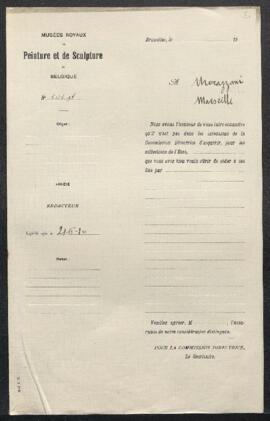 MUSÉES ROYAUX
DE
Peinture et de Sculpture
DE
BELGIQUE
N°
Objet :
ANNEXE
RÉDACTEUR
Expédié le
Bruxelles, le 18
M Morazzoni
Marseille
Nous avons l'honneur de vous faire connaître
qu'il n'est pas dans les intentions de la
Commission directrice d'acquérir, pour les
collections de l'État,
que vous avez bien voulu offrir de céder à cet
État par
Veuillez agréer, M , l'assu-
rance de notre considération distinguée.
POUR LA COMMISSION DIRECTRICE,
Le Secrétaire,